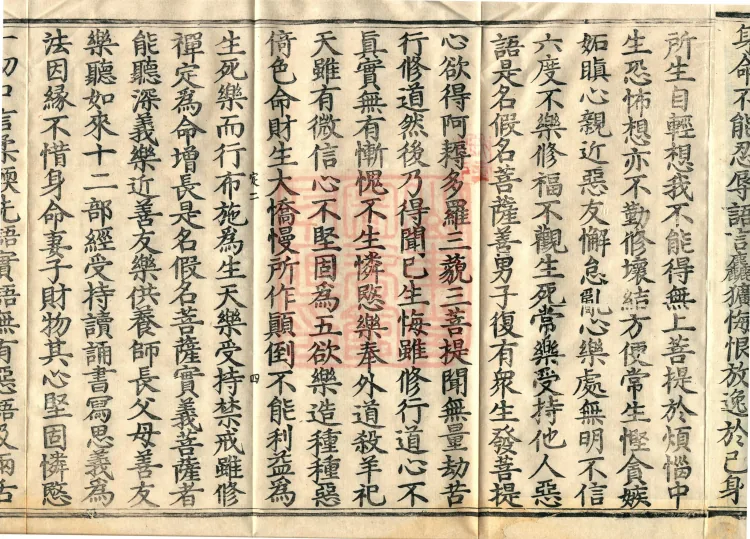 其命不能忍辱語言麤獷悔恨放逸於己身
所生自輕想我不能得無上菩提於煩惱中
生恐怖想亦不勤修壞結方便常生慳貪嫉
妬瞋心親近惡友懈怠亂心樂處無明不信
六度不樂修福不觀生死常樂受持他人惡
語是名假名菩薩善男子復有衆生發菩提
心欲得阿耨多羅三藐三菩提聞無量劫苦
行修道然後乃得聞已生悔雖修行道心不
眞實無有慚愧不生憐愍樂奉外道殺羊祀
天雖有微信心不堅固為五欲樂造種種惡
倚色命財生大憍慢所作顛倒不能利益為
定二 四
生死樂而行布施為生天樂受持禁戒雖修
禪定為命增長是名假名菩薩實義菩薩者
能聽深義樂近善友樂供養師長父母善友
樂聽如來十二部經受持讀誦書寫思義為
法因緣不惜身命妻子財物其心堅固憐愍
一切口言柔軟先語實語無有惡語及兩舌